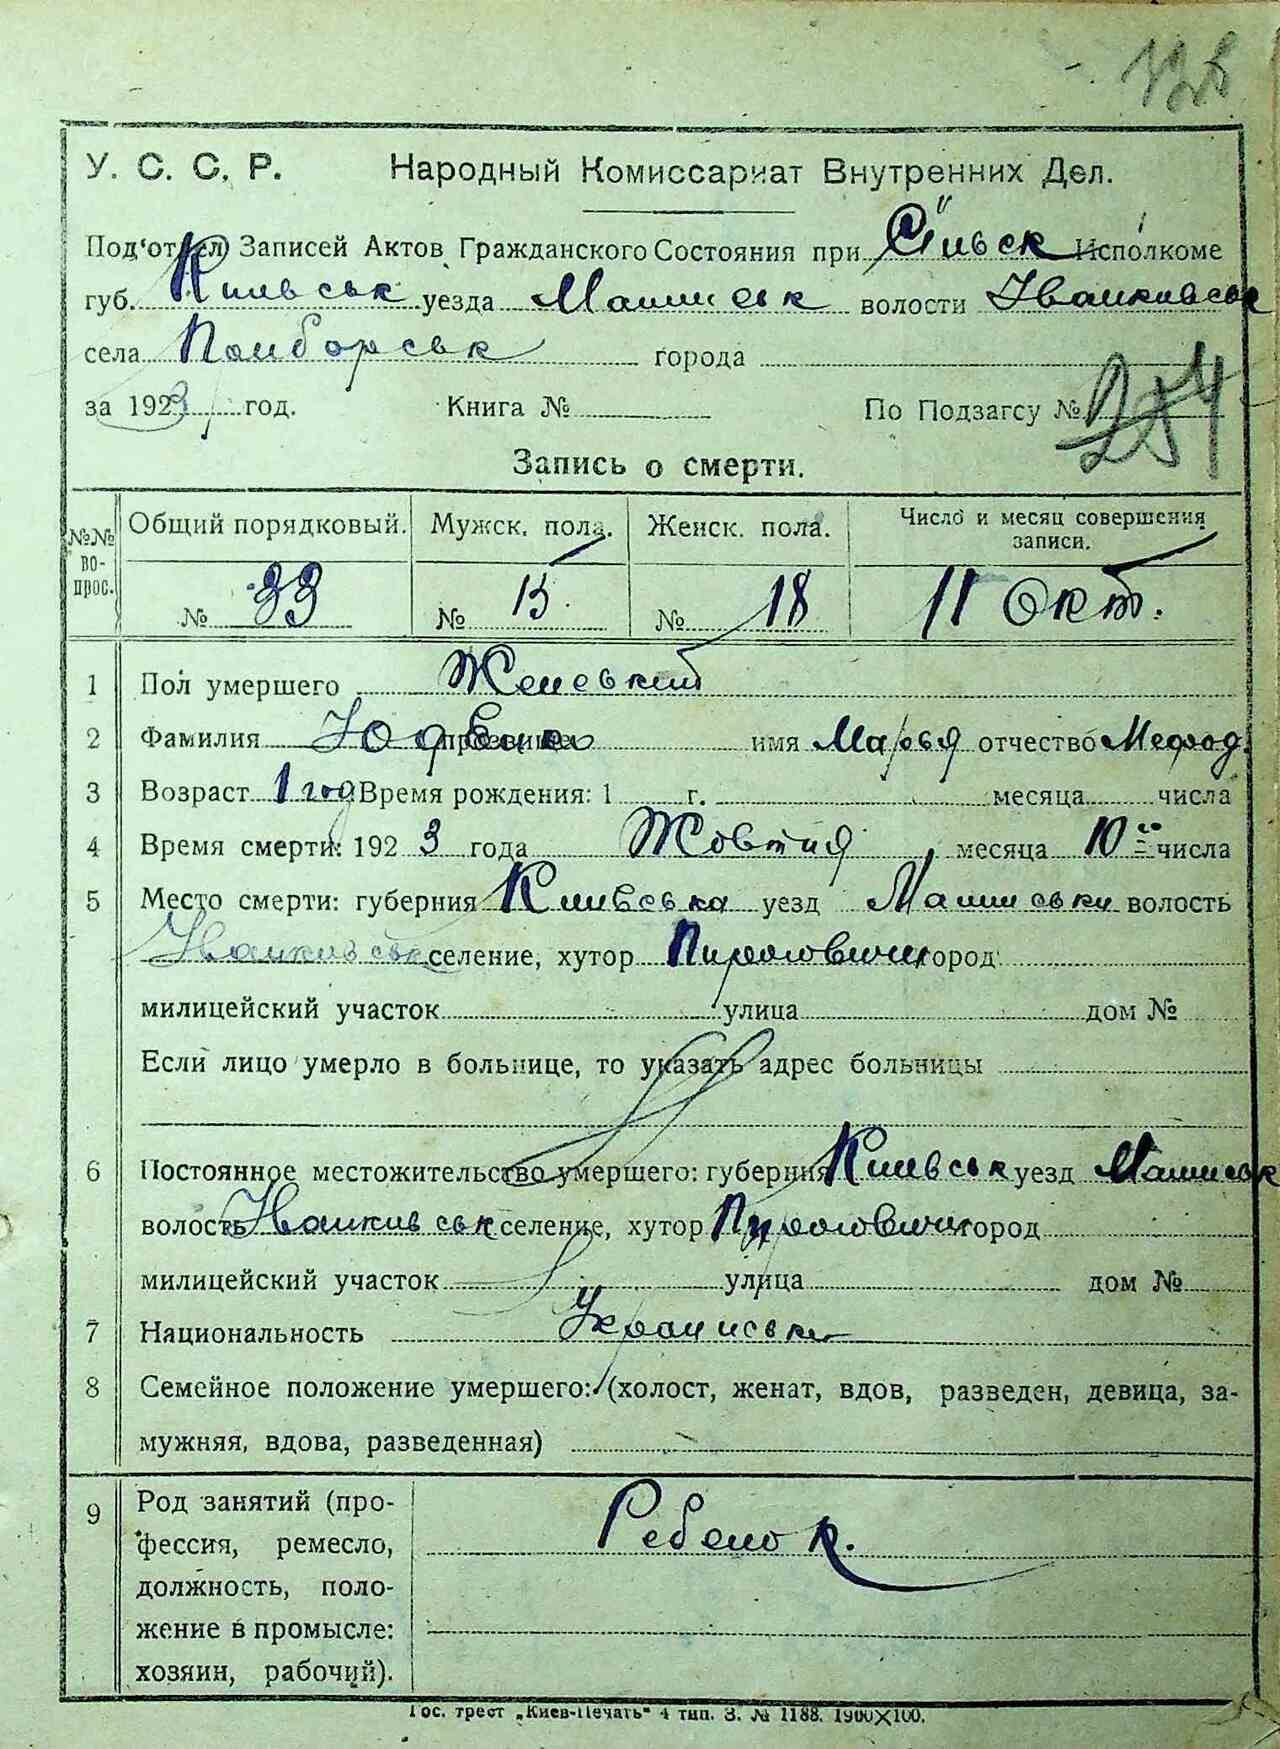 128
У. С. С. Р. Народный Комиссариат Внутренних Дел.
Под'отдел Записей Актов Гражданского Состояния при Сільськ Исполкоме
губ. Київськ уезда Малинськ волости Іванківськ
села Потборськ города
за 1923 год. Книга № По Подзагсу № 254
Запись о смерти.
№№ вопрос. Общий порядковый. Мужск. пола. Женск. пола. Число и месяц совершения записи.
№ 33 № 15. № 18 11 Окт.
1 Пол умершего Женський
2 Фамилия прозвище имя Марья отчество Мефод.
3 Возраст 1 год Время рождения: 1 г. месяца числа
4 Время смерти: 1923 года Жовтня месяца 10 числа
5 Место смерти: губерния Київська уезд Малинськи волость
Іванківськ селение, хутор Пироговичи город
милицейский участок улица дом №
Если лицо умерло в больнице, то указать адрес больницы
6 Постоянное местожительство умершего: губерния Київськ уезд Малинськ
волость Іванківськ селение, хутор Пироговичи город
милицейский участок улица дом №
7 Национальность Украінська
8 Семейное положение умершего: (холост, женат, вдов, разведен, девица, за-
мужняя, вдова, разведенная)
9 Род занятий (про-
фессия, ремесло, Ребенок.
должность, поло-
жение в промысле:
хозяин, рабочий).
Гос. трест „Киев-Печать“ 4 тип. З. № 1188. 1900X100.